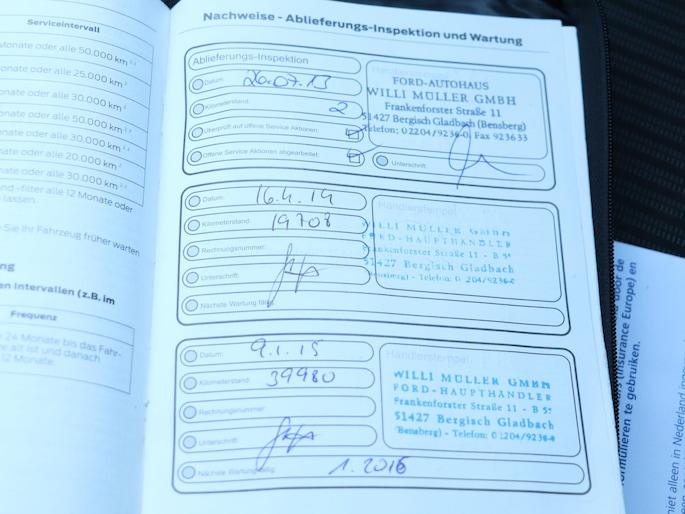 Serviceintervall
Monate oder alle 50.000 km
Monate oder alle 25.000 km
nate oder alle 30.000 km
nate oder alle 50.000 km
nate oder alle 30.000 km
nate oder alle 20.000 km
nate oder alle 30.000 km
nd -filter alle 12 Monate oder
lassen.
Sie Ihr Fahrzeug früher warten
ng
en Intervallen (z.B. im
Frequenz
24 Monate bis das Fahr-
alt ist und danach
12 Monate.
Nachweise - Ablieferungs-Inspektion und Wartung
Ablieferungs-Inspektion
Datum: 26.07.13
Kilometerstand: 2
Überprüft auf offene Service Aktionen:
Offene Service Aktionen abgearbeitet:
FORD-AUTOHAUS
WILLI MÜLLER GMBH
Frankenforster Straße 11
51427 Bergisch Gladbach (Bensberg)
Telefon: 02204/9236-0, Fax 923633
Unterschrift:
Datum: 16.4.14
Kilometerstand: 19708
Rechnungsnummer:
Unterschrift:
Nächste Wartung fällig:
Händlerstempel
WILLI MÜLLER GMBH
FORD-HAUPTHÄNDLER
Frankenforster Straße 11 - B 55
51427 Bergisch Gladbach
(Bensberg) - Telefon: 0 204/9236-0
Datum: 9.1.15
Kilometerstand: 39980
Rechnungsnummer:
Unterschrift:
Nächste Wartung fällig: 1.2016
Händlerstempel
WILLI MÜLLER GMBH
FORD-HAUPTHÄNDLER
Frankenforster Straße 11 - B 55
51427 Bergisch Gladbach
(Bensberg) - Telefon: 02204/9236-0
door de
(Insurance Europe) en
formulieren te gebruiken.
niet alleen in Nederland